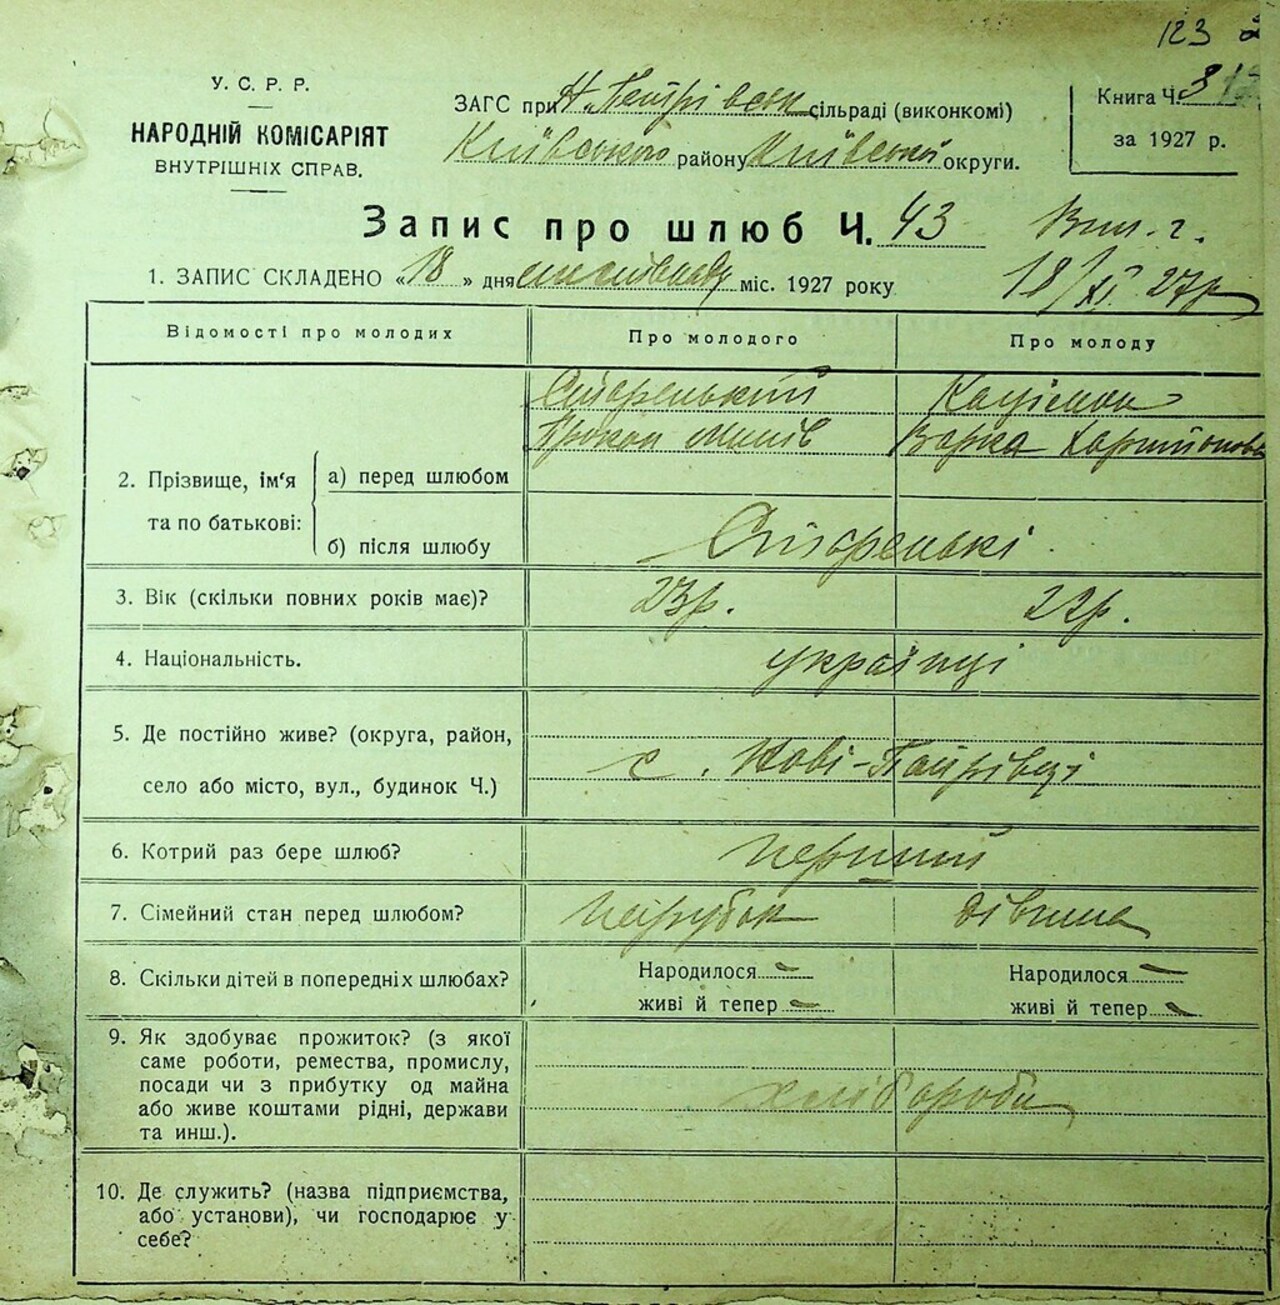 123
У. С. Р. Р.
НАРОДНІЙ КОМІСАРІЯТ
ВНУТРІШНІХ СПРАВ.
ЗАГС при Н. Петрівськ сільраді (виконкомі)
Київського району Київської округи.
Книга Ч. 3
за 1927 р.
Запис про шлюб Ч. 43
Вип. г.
18/XI 27р
1. ЗАПИС СКЛАДЕНО „18" дня листопаду міс. 1927 року
Відомості про молодих
Про молодого
Про молоду
2. Прізвище, ім'я
та по батькові:
а) перед шлюбом
Старенький
Прокоп
Варка Харитонова
б) після шлюбу
Старенькі
3. Вік (скільки повних років має)?
23р.
22р.
4. Національність.
українці
5. Де постійно живе? (округа, район,
село або місто, вул., будинок Ч.)
с. Нові-Петрівці
6. Котрий раз бере шлюб?
перший
7. Сімейний стан перед шлюбом?
парубок
дівчина
8. Скільки дітей в попередніх шлюбах?
Народилося —
живі й тепер —
Народилося —
живі й тепер —
9. Як здобуває прожиток? (з якої
саме роботи, ремества, промислу,
посади чи з прибутку од майна
або живе коштами рідні, держави
та инш.).
хлібороби
10. Де служить? (назва підприємства,
або установи), чи господарює у
себе?